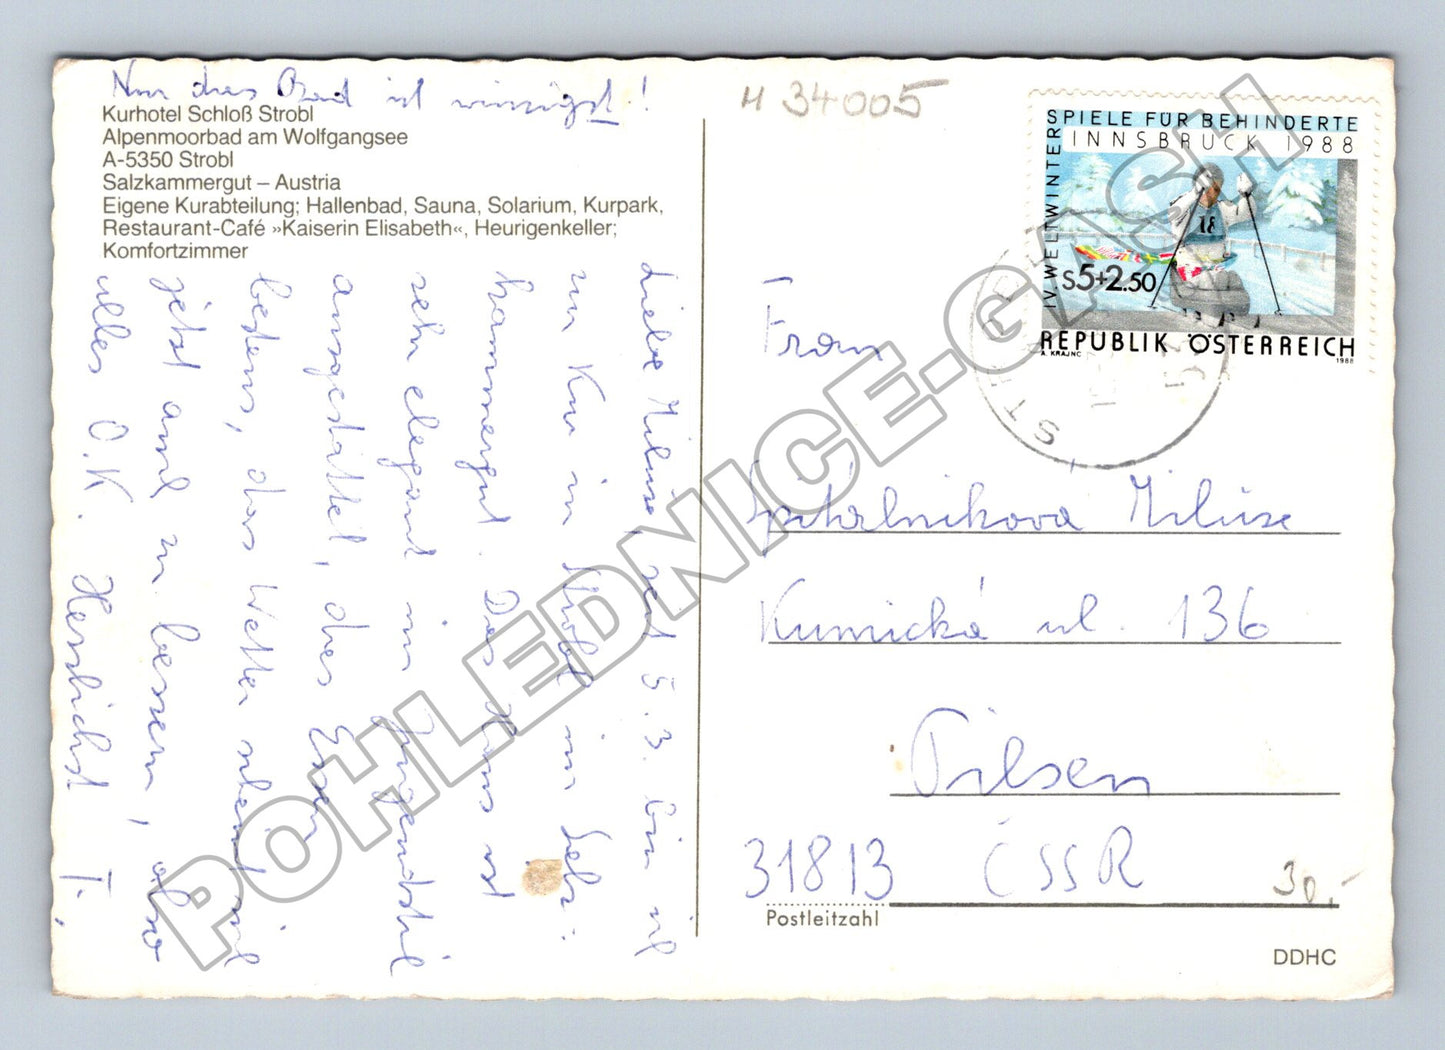 Nur das Bad ist winzigst!
Kurhotel Schloß Strobl
Alpenmoorbad am Wolfgangsee
A-5350 Strobl
Salzkammergut – Austria
Eigene Kurabteilung; Hallenbad, Sauna, Solarium, Kurpark,
Restaurant-Café »Kaiserin Elisabeth«, Heurigenkeller;
Komfortzimmer
Liebe Miluse, seit 5.3. bin ich
zur Kur in Strobl im Salz-
kammergut. Das Haus ist
sehr elegant im Jugendstil
ausgestattet, das Essen
bestens, das Wetter scheint sich
jetzt auch zu bessern, also
alles O.K. Herzlichst T.
H 34005
IV. WELTWINTER
SPIELE FÜR BEHINDERTE
INNSBRUCK 1988
18
S5+2.50
REPUBLIK ÖSTERREICH
A. KRAJNC
1988
Frau
Spitalnikova Miluse
Kumická ul. 136
Pilsen
31813 ČSSR
Postleitzahl
30,-
DDHC
POHLEDNICE-GASH